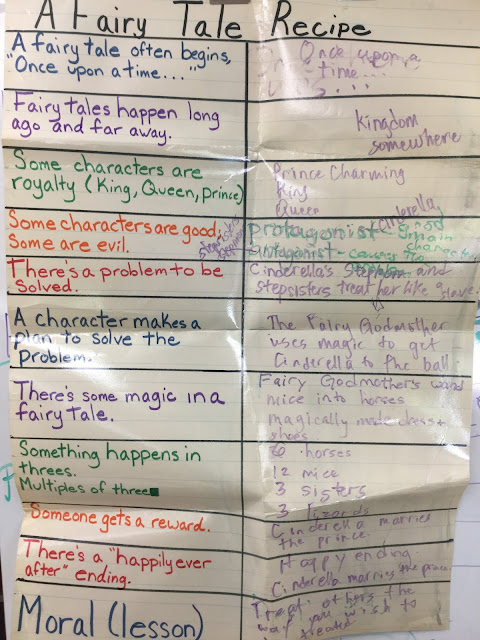 A Fairy Tale Recipe
A fairy tale often begins,
"Once upon a time..."
Once upon a
time...
Fairy tales happen long
ago and far away.
Kingdom
somewhere
Some characters are
royalty (King, Queen, prince)
Prince Charming
King
Queen
Some characters are good;
Some are evil.
Cinderella
protagonist - good
main
character
antagonist -
There's a problem to be
solved.
Cinderella's and
stepsisters treat her like slave.
A character makes a
plan to solve the
problem.
The Fairy Godmother
uses magic to get
Cinderella to the ball.
There's some magic in a
fairy tale.
Fairy Godmother's wand
mice into horses
magically made dress &
shoes
Something happens in
threes.
Multiples of three
6 horses
12 mice
3 sisters
3 lizards
Someone gets a reward.
Cinderella marries
the prince.
There's a "happily ever
after" ending.
Happy ending
Cinderella marries the prince.
Moral (lesson)
Treat others the
way you wish to
treated